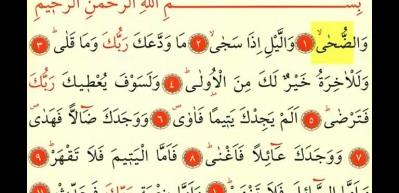 بِسْــــــمِ اللّٰهِ الرَّحْمٰنِ الرَّحِيْمِ
وَالضُّحٰىۙ ﴿١﴾ وَالَّيْلِ اِذَا سَجٰىۙ ﴿٢﴾ مَا وَدَّعَكَ رَبُّكَ وَمَا قَلٰىۜ ﴿٣﴾
وَلَلْاٰخِرَةُ خَيْرٌ لَكَ مِنَ الْاُولٰىۜ ﴿٤﴾ وَلَسَوْفَ يُعْط۪يكَ رَبُّكَ
فَتَرْضٰىۜ ﴿٥﴾ اَلَمْ يَجِدْكَ يَت۪يمًا فَاٰوٰىۖ ﴿٦﴾ وَوَجَدَكَ ضَٓالًّا فَهَدٰىۖ
﴿٧﴾ وَوَجَدَكَ عَٓائِلًا فَاَغْنٰىۜ ﴿٨﴾ فَاَمَّا الْيَت۪يمَ فَلَا تَقْهَرْۜ ﴿٩﴾